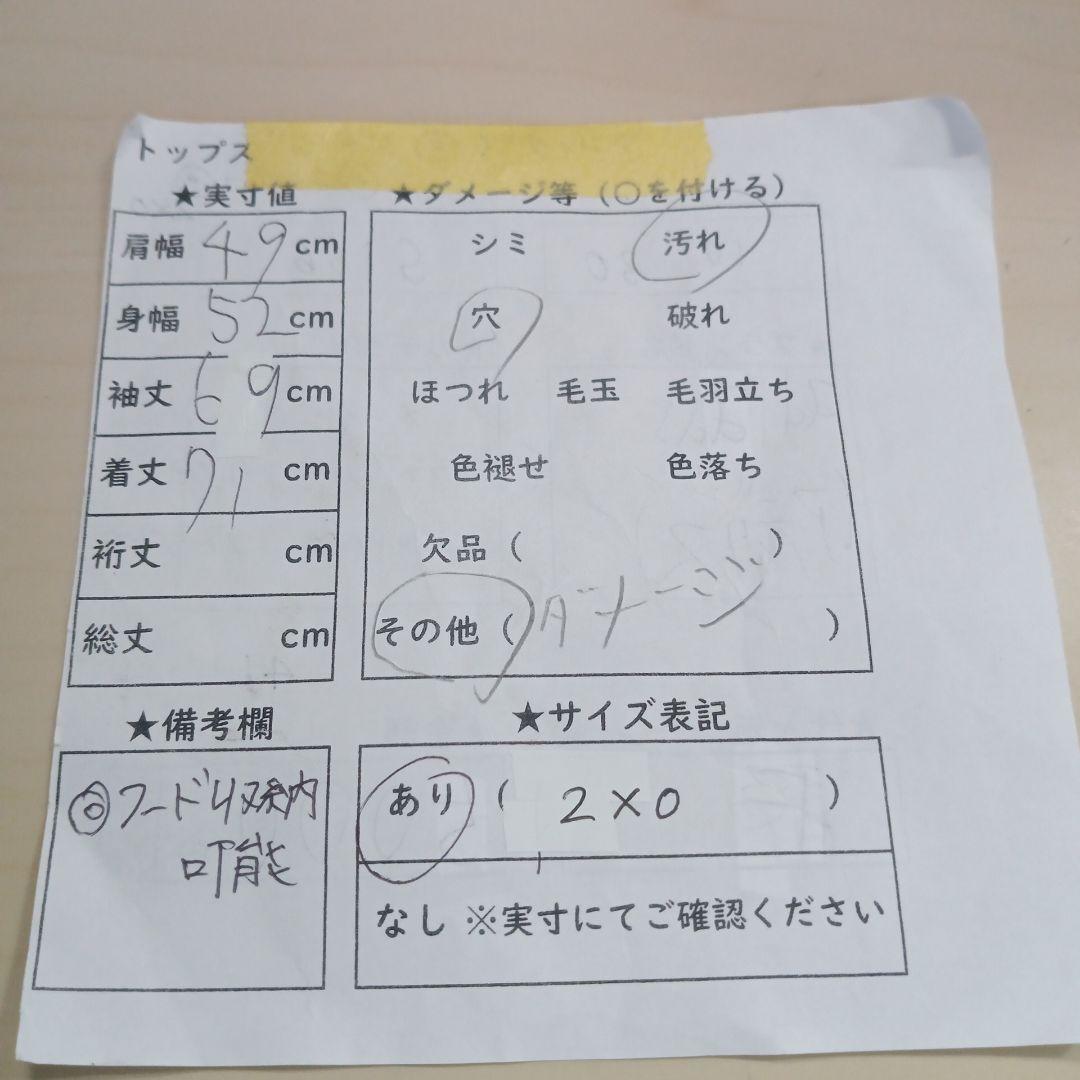 トップス
★実寸値
肩幅 49cm
身幅 52cm
袖丈 69cm
着丈 71 cm
裄丈 cm
総丈 cm
★ダメージ等（〇を付ける）
シミ 汚れ
穴 破れ
ほつれ 毛玉 毛羽立ち
色褪せ 色落ち
欠品（ ）
その他（ダメージ）
★備考欄
◎フード収納
可能
★サイズ表記
あり（ 2×0 ）
なし ※実寸にてご確認ください